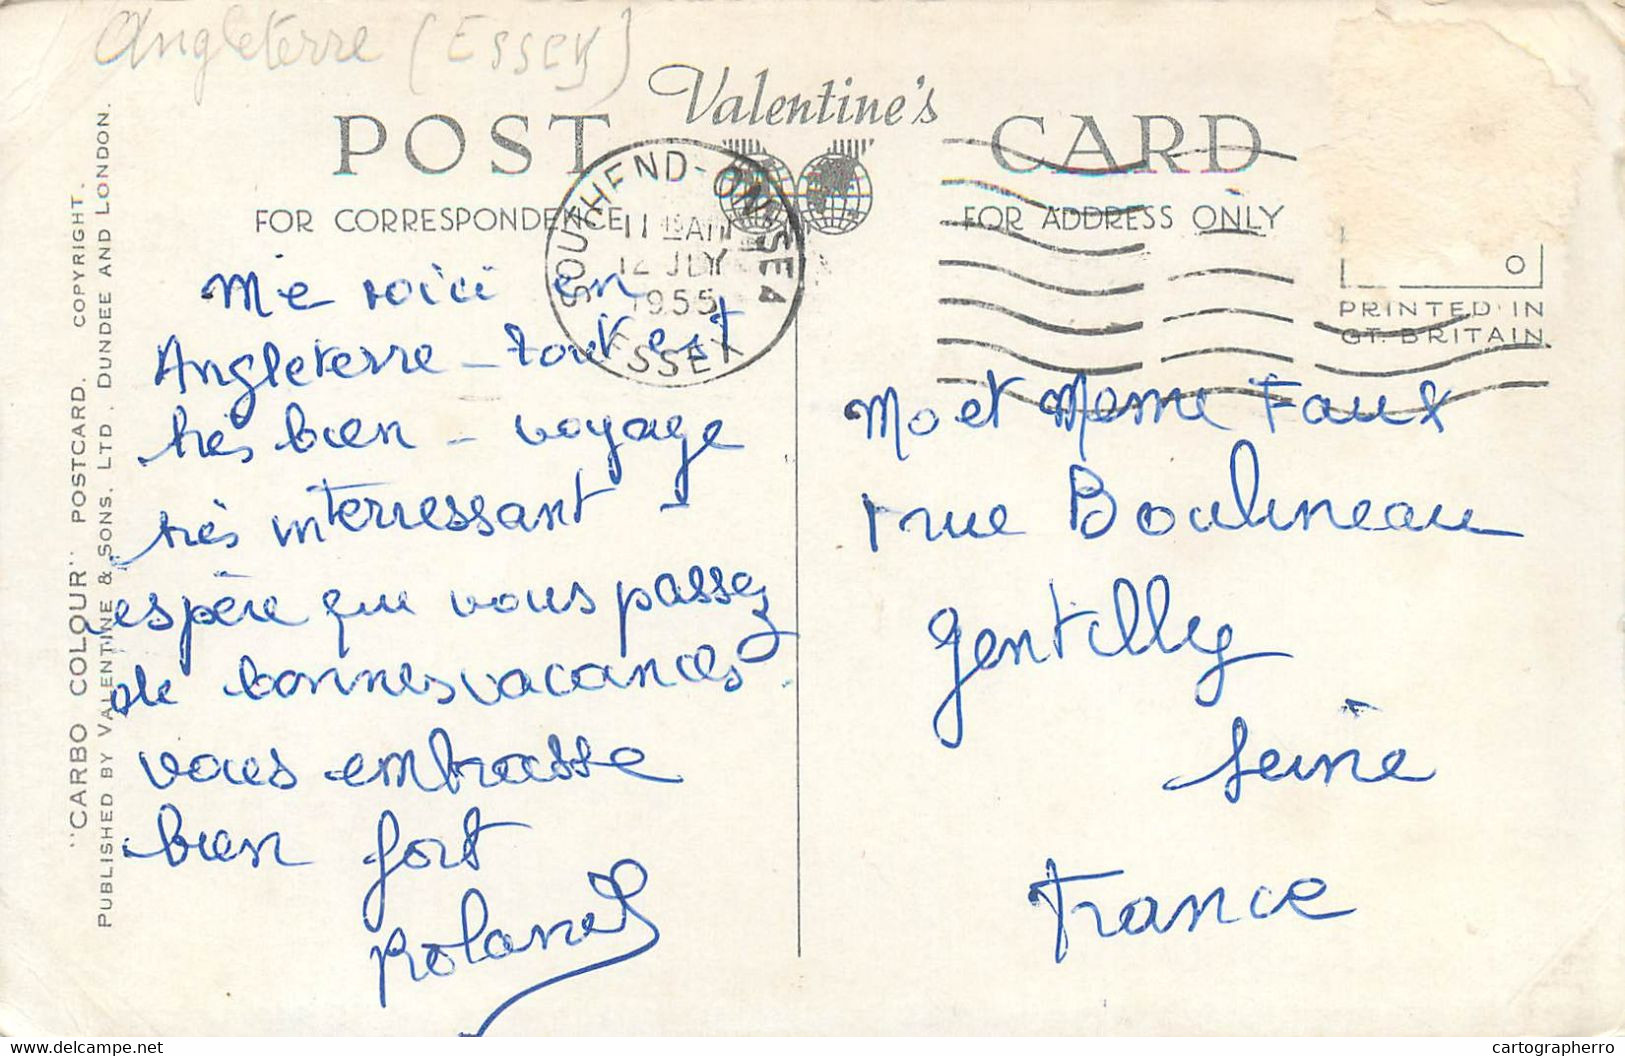 Angleterre (Essex)
Valentine's
POST CARD
FOR CORRESPONDENCE
FOR ADDRESS ONLY
SOUTHEND-ON-SEA
1115AM
12 JLY
1955
ESSEX
PRINTED IN
GT. BRITAIN
"CARBO COLOUR" POSTCARD. COPYRIGHT.
PUBLISHED BY VALENTINE & SONS. LTD. DUNDEE AND LONDON.
Me voici en
Angleterre - tout est
très bien - voyage
très interressant -
espère que vous passez
de bonnes vacances
vous embrasse
bien fort
Roland
Mo et Meme Faux
1 rue Boulineau
Gentilly
Seine
France
www.delcampe.net
cartographerro